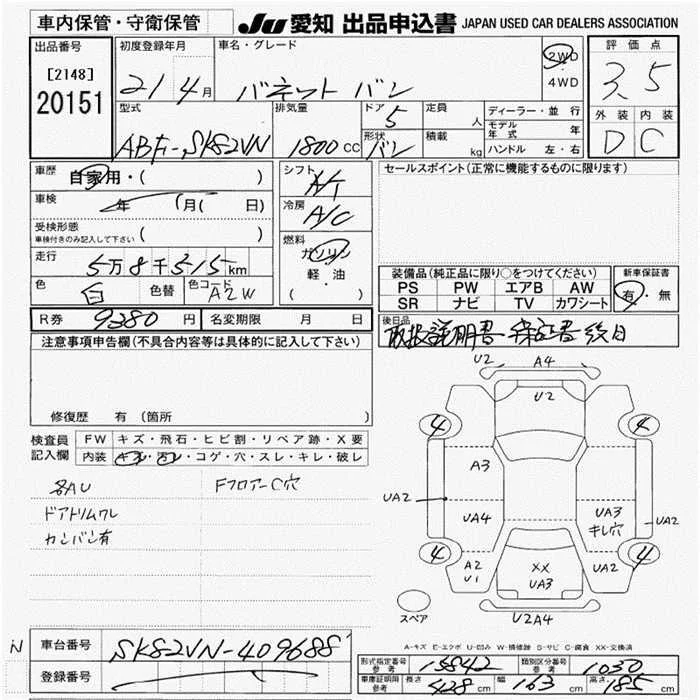 車内保管・守衛保管
JU 愛知 出品申込書 JAPAN USED CAR DEALERS ASSOCIATION
出品番号
[2148]
20151
初度登録年月
21 4月
車名・グレード
バネット バン
2WD
・
4WD
評価点
3.5
外装 内装
D C
型式
ABF-SK82VN
排気量
1800cc
ドア 5
形状 バン
定員 人
積載 kg
ディーラー・並行
モデル年式 年
ハンドル 左・右
車歴 自家用・( )
車検 年 月( 日)
受検形態
車検付きのみ記入して下さい ( )
走行
5万8千315km
色 白 色替
色コード A2W
シフト
A/T
冷房
A/C
燃料
ガソリン
軽・油
( ・ )
セールスポイント(正常に機能するものに限ります)
装備品(純正品に限り○をつけてください)
PS PW エアB AW
SR ナビ TV カワシート
新車保証書
有・無
R券 9380円 名変期限 月 日
後日品
取扱説明書・保証書 後日
注意事項申告欄(不具合内容等は具体的に記入して下さい)
修復歴 有 (箇所
検査員
記入欄
FW キズ・飛石・ヒビ割・リペア跡・X要
内装 キズ・汚レ・コゲ・穴・スレ・キレ・破レ
各AU
Fフロアー C穴
ドアトリムワレ
カンバン有
U2 A4
U2
4 4
A3
UA2
UA4
UA3
キレ穴
UA2
4 4
A2
U1
XX
UA3
UA2
スペア
U2A4
A-キズ E-エクボ U-凹み W-補修跡 S-サビ C-腐食 XX-交換済
N
車台番号 SK82VN-409688
登録番号
形式指定番号
参考
15842
類別区分番号
参考
1030
車庫証明用
参考
長さ 428cm
幅 163cm
高さ 185cm